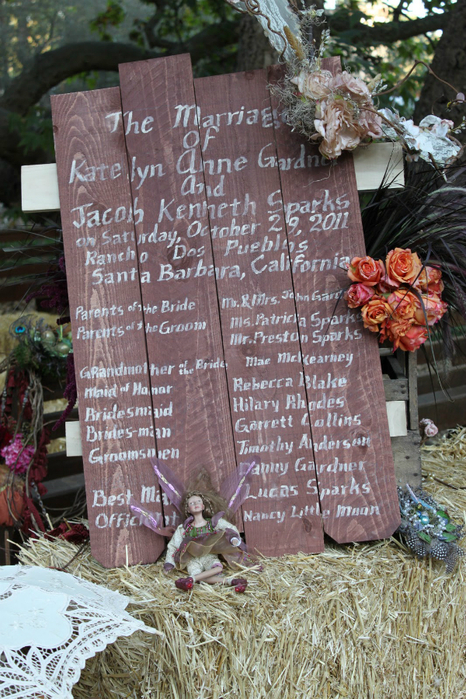 The Marriag
of
Katelyn Anne Gardne
And
Jacob Kenneth Sparks
on Saturday, October 29, 2011
Rancho Dos Pueblos
Santa Barbara, California
Parents of the Bride Mr. & Mrs. John Gard
Parents of the Groom Ms. Patricia Sparks
Mr. Preston Sparks
Grandmother of the Bride Mae McKearney
Maid of Honor Rebecca Blake
Bridesmaid Hilary Rhodes
Brides-man Garrett Collins
Groomsmen Timothy Anderson
Danny Gardner
Best Ma Lucas Sparks
Offici Nancy Little Moon